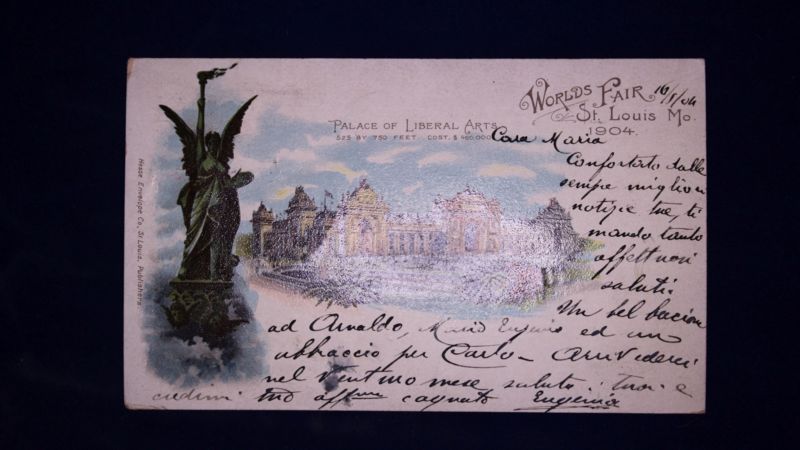 WORLDS FAIR
St. Louis Mo.
1904.
16/8/04
PALACE OF LIBERAL ARTS
525 BY 750 FEET. COST, $ 460.000
Hesse Envelope Co., St. Louis, Publishers.
Cara Maria
Confortato dalle
sempre migliori
notizie tue, ti
mando tanto
affettuosi
saluti.
Un bel bacione
ad Arnaldo, Mario Eugenio ed un
abbraccio per Carlo - Arrivederci
nel mese saluta i tuoi e
credimi tuo aff cognato Eugenio